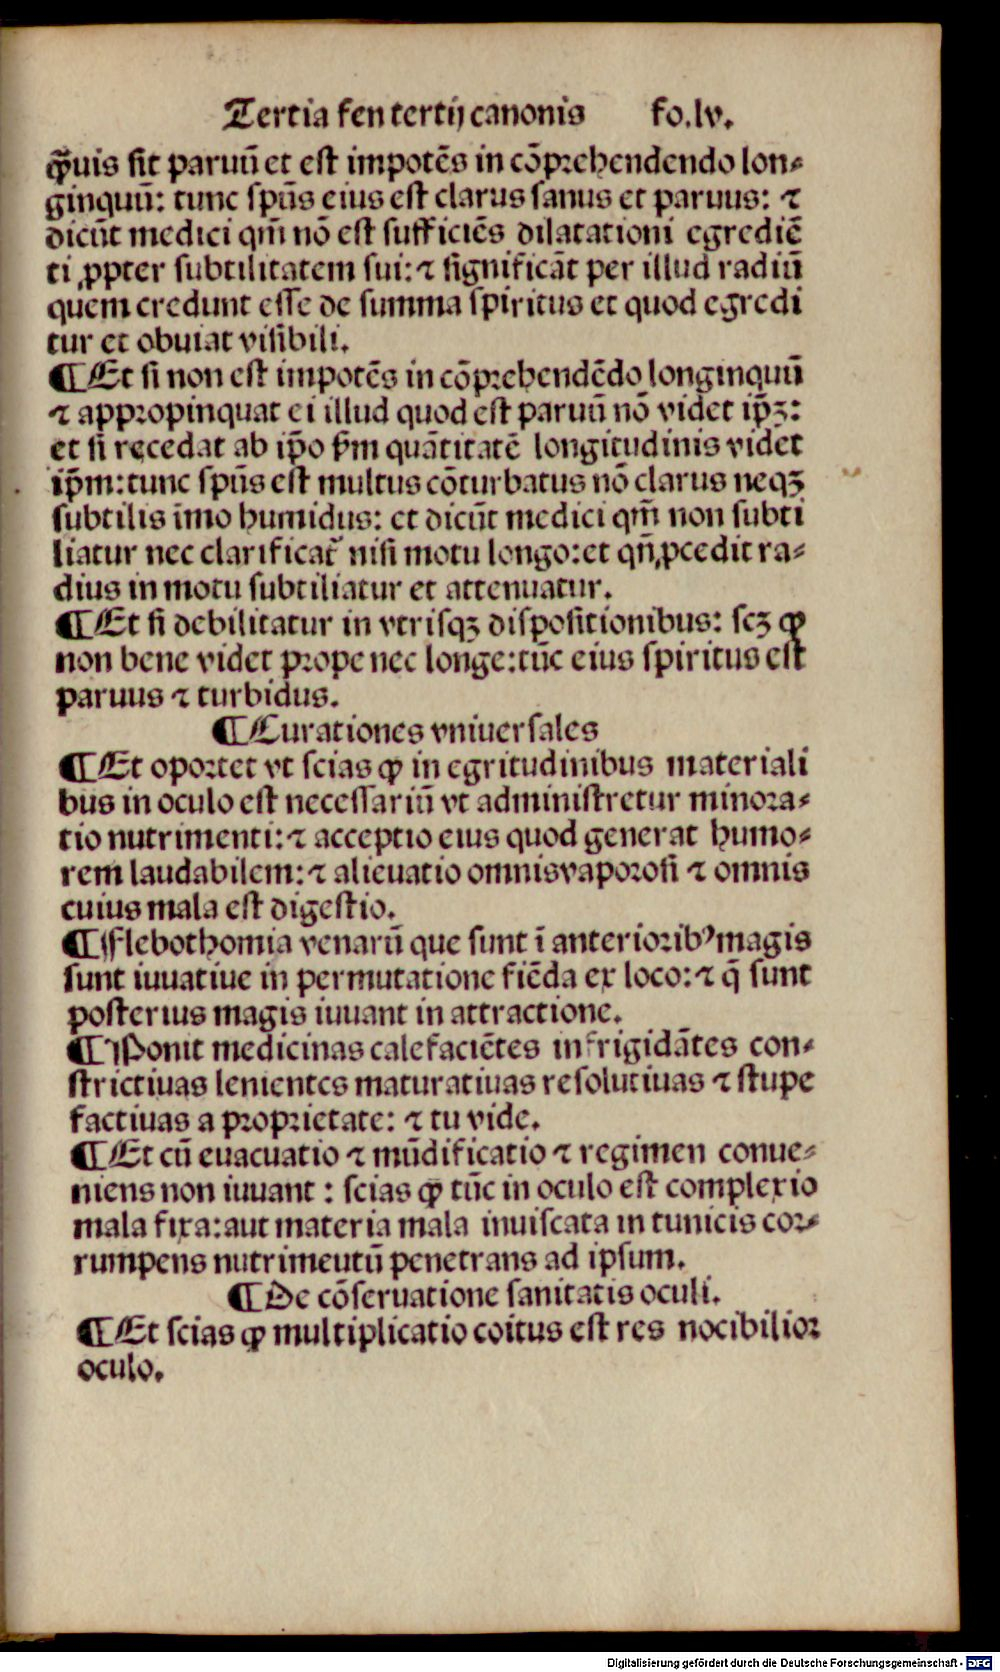 Tertia fen tertij canonis fo.lv.
ꝙ̃uis sit paruū et est impotēs in cōprehendendo lon⸗
ginquū: tunc spūs eius est clarus sanus et paruus: ⁊
dicūt medici qm̄ nō est sufficiēs dilatationi egrediē
ti ꝓpter subtilitatem sui: ⁊ significāt per illud radiū
quem credunt esse de summa spiritus et quod egredi
tur et obuiat visibili.
¶Et si non est impotēs in cōprehendēdo longinquū
⁊ appropinquat ei illud quod est paruū nō videt ip̄ꝫ:
et si recedat ab ip̄o ẜm quātitatē longitudinis videt
ip̄m: tunc spūs est multus cōturbatus nō clarus neqꝫ
subtilis īmo humidus: et dicūt medici qm̄ non subti
liatur nec clarificat̃ nisi motu longo: et qn̄ ꝓcedit ra⸗
dius in motu subtiliatur et attenuatur.
¶Et si debilitatur in vtrisqꝫ dispositionibus: scꝫ ꝙ
non bene videt prope nec longe: tūc eius spiritus est
paruus ⁊ turbidus.
¶Curationes vniuersales
¶Et oportet vt scias ꝙ in egritudinibus materiali
bus in oculo est necessariū vt administretur minora⸗
tio nutrimenti: ⁊ acceptio eius quod generat humo⸗
rem laudabilem: ⁊ alieuatio omnis vaporosi ⁊ omnis
cuius mala est digestio.
¶Flebothomia venarū que sunt ī anteriorib⁹ magis
sunt iuuatiue in permutatione fiēda ex loco: ⁊ q̄ sunt
posterius magis iuuant in attractione.
¶Ponit medicinas calefaciētes infrigidātes con⸗
strictiuas lenientes maturatiuas resolutiuas ⁊ stupe
factiuas a proprietate: ⁊ tu vide.
¶Et cū euacuatio ⁊ mūdificatio ⁊ regimen conue⸗
niens non iuuant: scias ꝙ tūc in oculo est complexio
mala fixa: aut materia mala inuiscata in tunicis cor⸗
rumpens nutrimeutū penetrans ad ipsum.
¶De cōseruatione sanitatis oculi.
¶Et scias ꝙ multiplicatio coitus est res nocibilior
oculo.
Digitalisierung gefördert durch die Deutsche Forschungsgemeinschaft - DFG